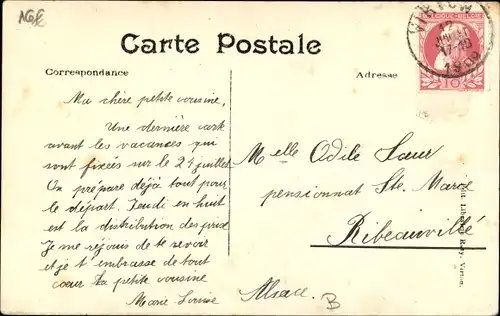 Nalf
Carte Postale
Correspondance
Adresse
VIRTON
1909
10
Ma chère petite cousine,
Une dernière carte
avant les vacances qui
sont fixées sur le 24 juillet
On prépare déjà tout pour
le départ. Jeudi en huit
est la distribution des prix
Je me réjouis de te revoir
et je t embrasse de tout
cœur ta petite cousine
Marie Louise
Melle Odile Sœur
pensionnat Ste. Marie
Ribeauvillé
Alsace.
B